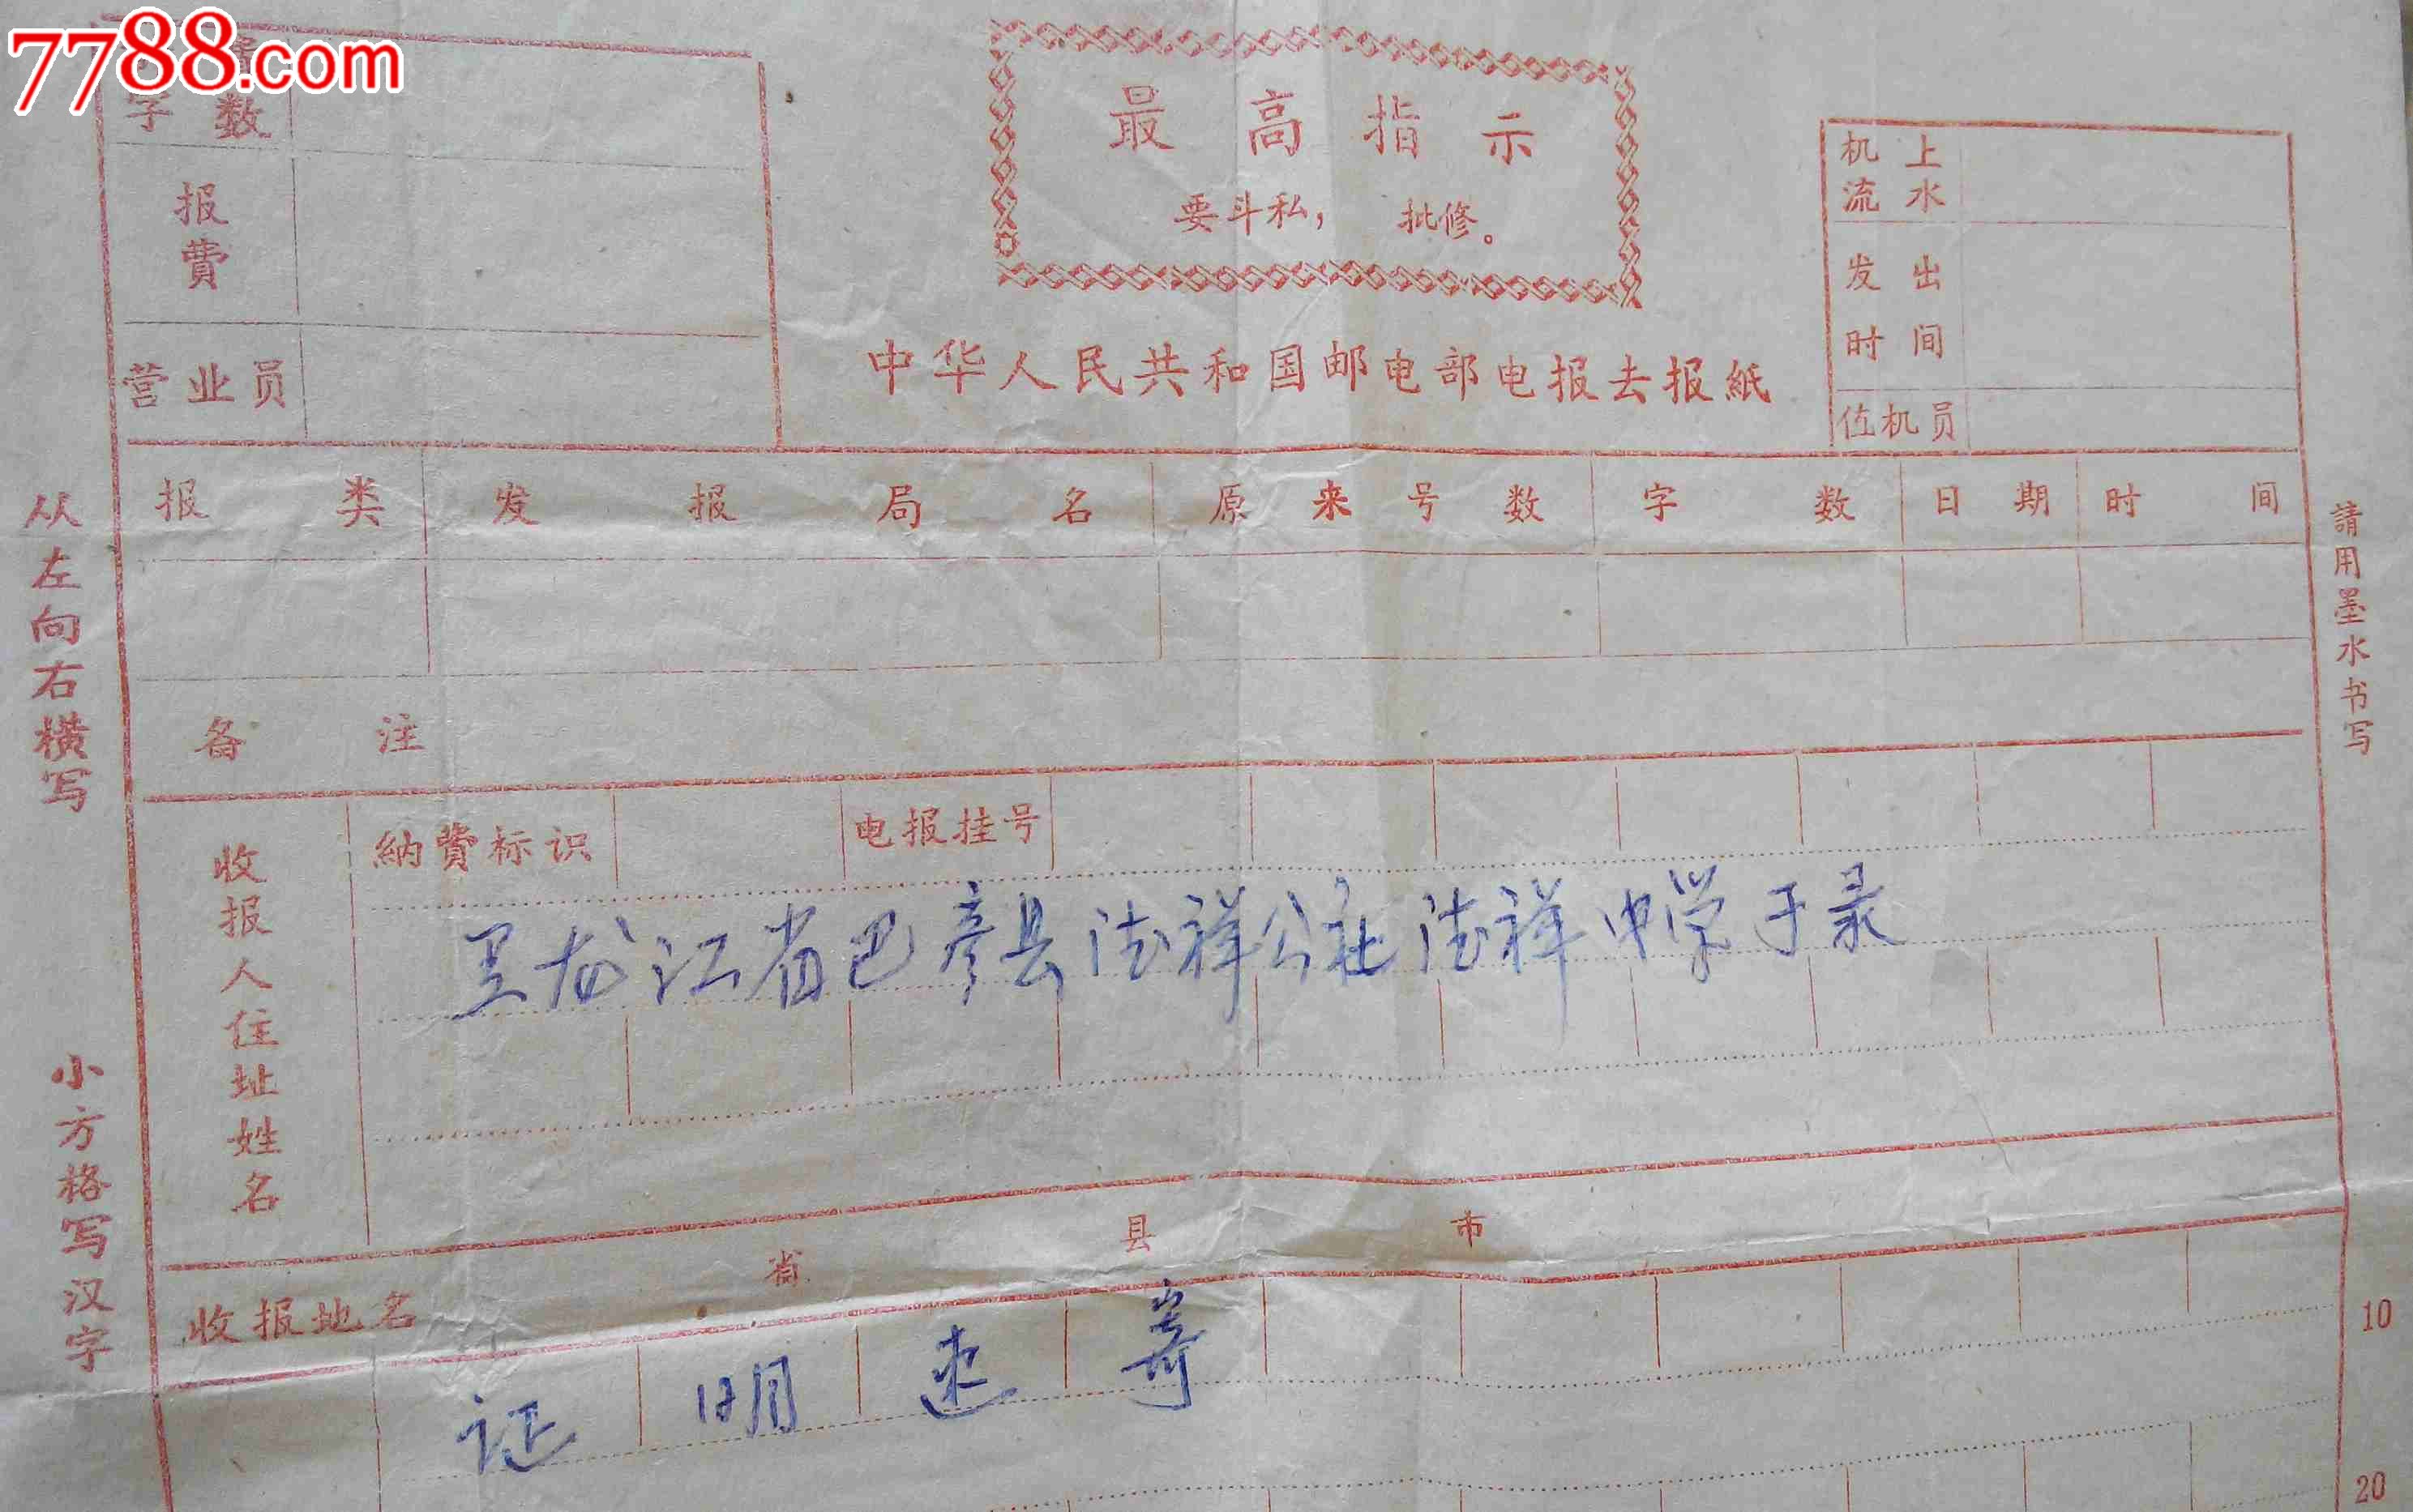 7788.com
字数
报費
营业员
最高指示
要斗私，批修。
中华人民共和国邮电部电报去报紙
机上流水
发出时间
值机员
报类 发报局名 原来号数 字数 日期 时间
备注
纳費标识 电报挂号
收报人住址姓名
黑龙江省巴彦县德祥公社德祥中学于录
收报地名 省 县 市
证明速寄
10
20
从左向右横写
小方格写汉字
請用墨水书写